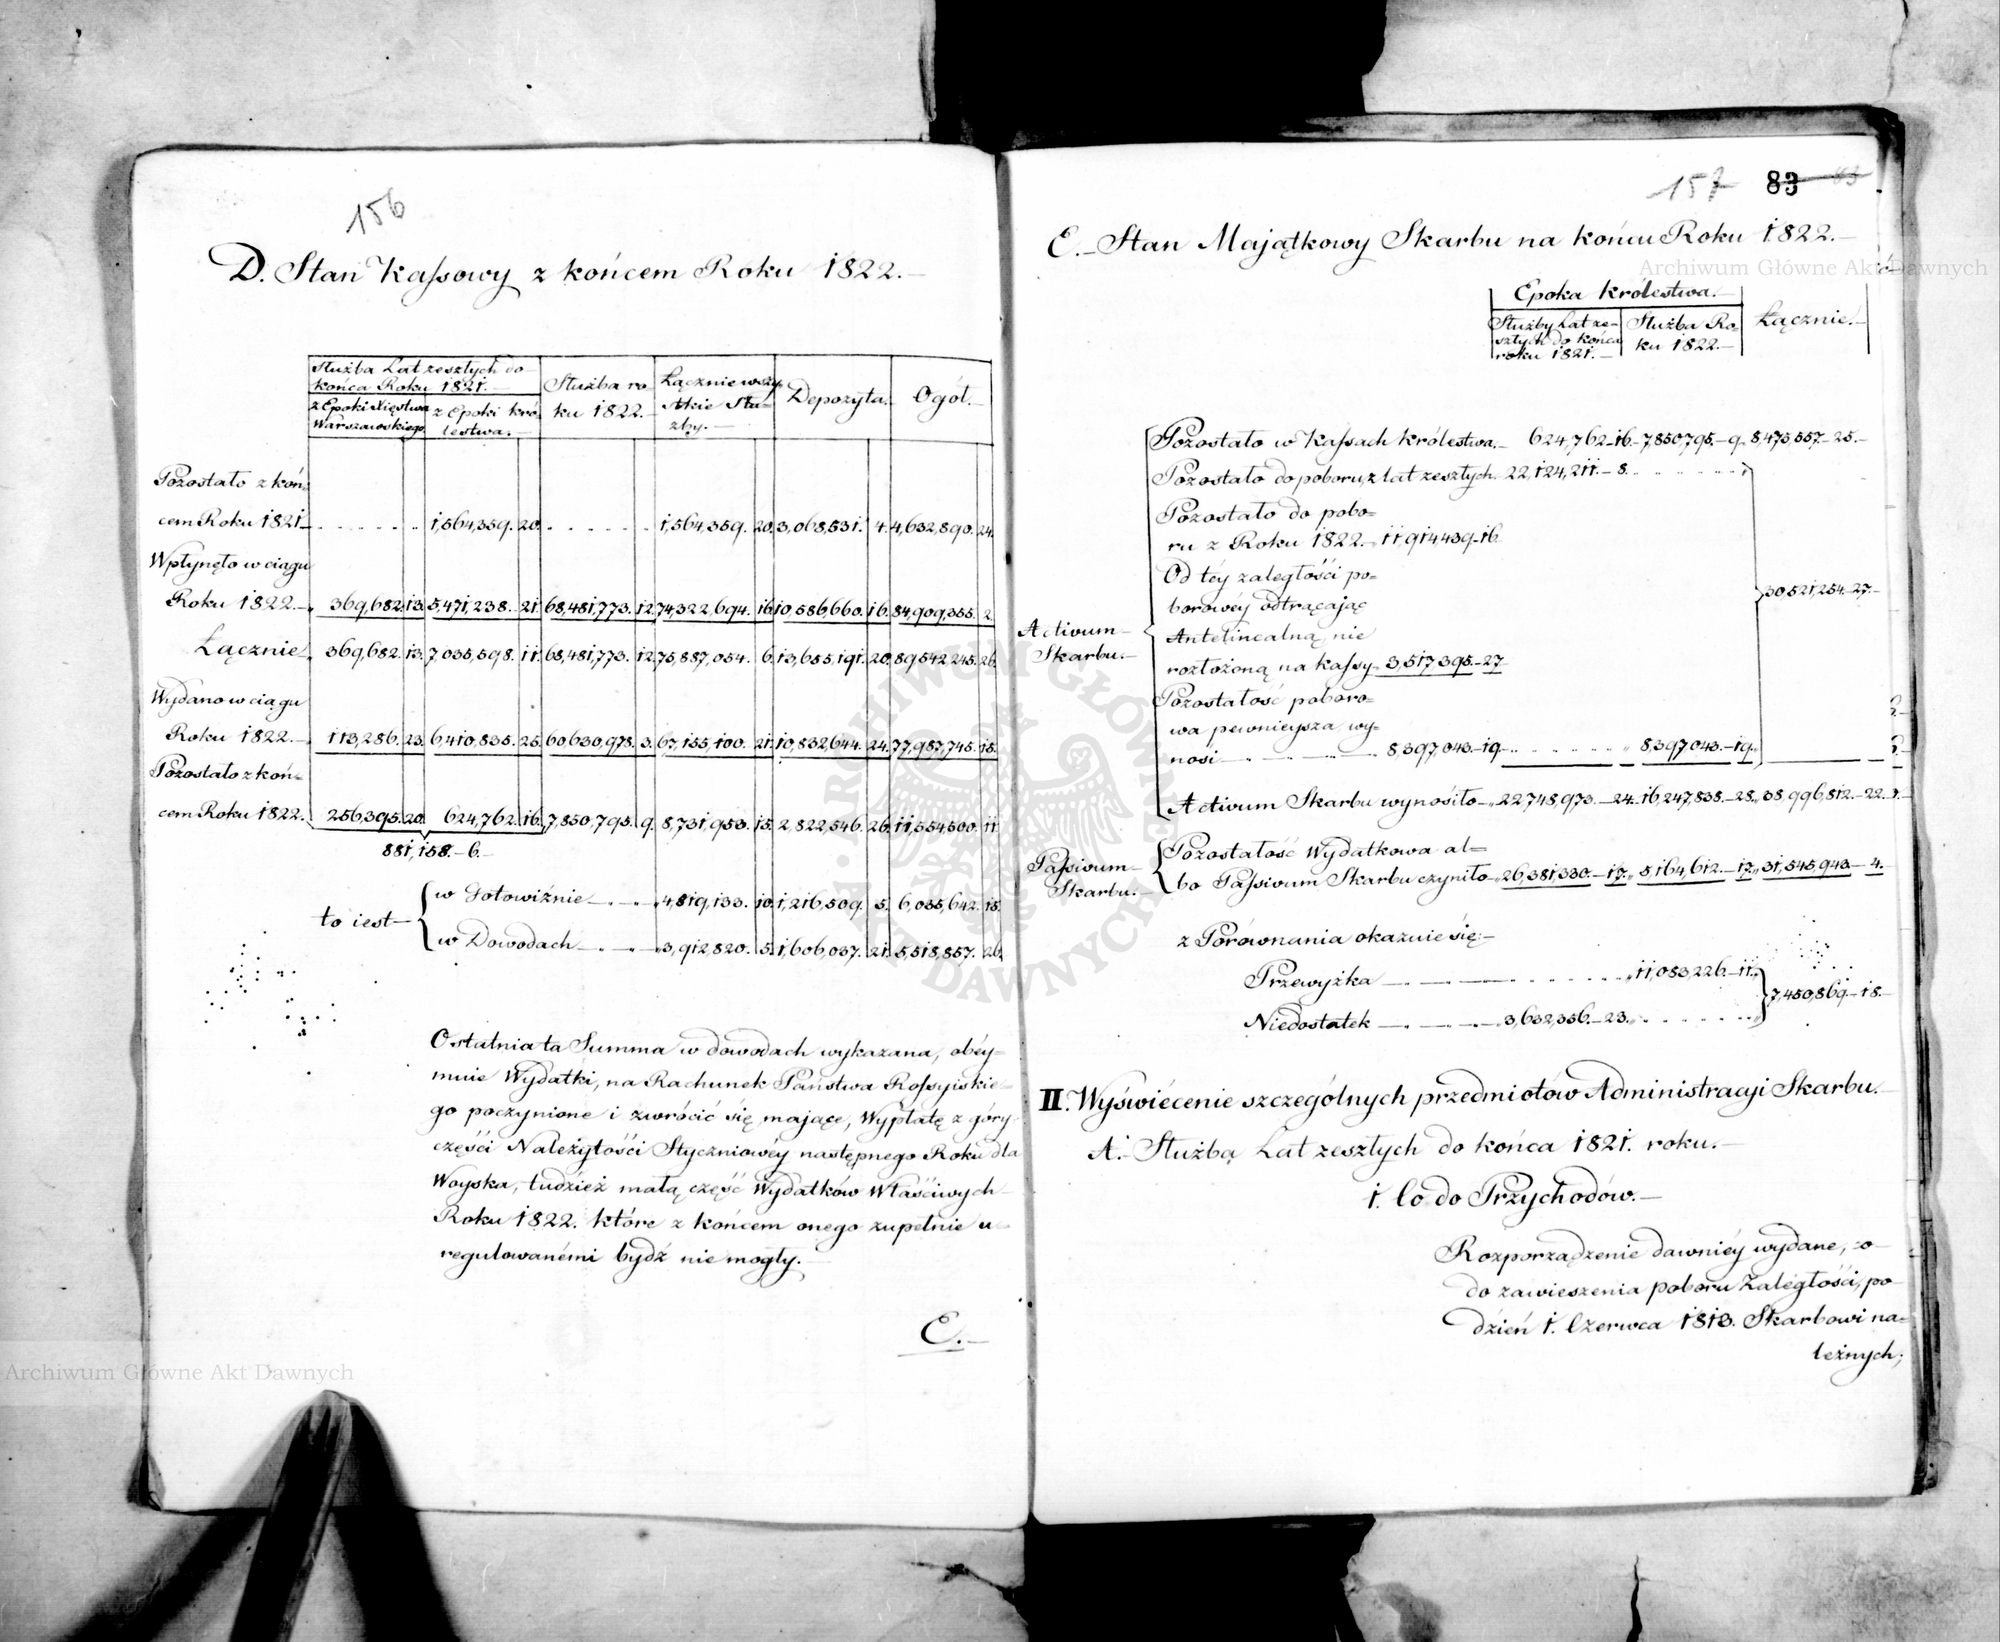 156
D. Stan Kassowy z końcem Roku 1822.—
Służba Lat zeszłych do końca Roku 1821.— | Służba roku 1822.— | Łącznie wszystkie Służby.— | Depozyta. | Ogół.—
z Epoki Xięstwa Warszawskiego. | z Epoki Królestwa.—
Pozostało z koń=
cem Roku 1821. 1,564,359. 20. 1,564,359. 20. 3,068,531. 4. 4,632,890. 24.
Wpłynęło w ciągu
Roku 1822.— 369,682. 13. 5,471,238. 21. 68,481,773. 12. 74,322,694. 16. 10,586,660. 16. 84,909,355. 2.
Łącznie 369,682. 13. 7,035,598. 11. 68,481,773. 12. 75,887,054. 6. 13,655,191. 20. 89,542,245. 26.
Wydano w ciągu
Roku 1822.— 113,286. 23. 6,410,835. 25. 60,630,978. 3. 67,155,100. 21. 10,832,644. 24. 77,987,745. 15.
Pozostało z koń=
cem Roku 1822. 256,395. 20. 624,762. 16. 7,850,795. 9. 8,731,953. 15. 2,822,546. 26. 11,554,500. 11.
881,158.—6.—
to iest—
w Gotowiźnie 4,819,133. 10. 1,216,509. 5. 6,035,642. 15.
w Dowodach 3,912,820. 5. 1,606,037. 21. 5,518,857. 26.
Ostatnia ta Summa w dowodach wykazana, obey=
muie Wydatki, na Rachunek Państwa Rossyiskie=
go poczynione i zwrócić się maiące, Wypłatę z góry
części Należytości Styczniowéy następnego Roku dla
Woyska, tudzież małą część Wydatków Właściwych
Roku 1822. które z końcem onego zupełnie u=
regulowanémi bydź nie mogły.—
E.—
157 83
E.—Stan Majątkowy Skarbu na końcu Roku 1822.—
Epoka Królestwa.— | Łącznie.—
Służby Lat zeszłych do końca roku 1821.— | Służba Roku 1822.—
Activum
Skarbu.—
Pozostało w Kassach Królestwa.— 624,762—16.— 7,850795.—9. 8,475,557—25.—
Pozostało do poboru z lat zeszłych. 22,124,211.—8.
Pozostało do pobo=
ru z Roku 1822.— 11,914,439.—16.
Od téy zaległości po=
borowéy odtrącaiąc
Antelinealną, nie
rozłożoną na kassy 3,517,395.—27
30,521,254.—27.—
Pozostałość poboro=
wa pewnieysza wy=
nosi 8,397,043.—19. 8,397,043.—19.
Activum Skarbu wynosiło 22,748,973.—24. 16,247,838.—28. 38,996,812.—22.
Passivum
Skarbu.
Pozostałość Wydatkowa al=
bo Passivum Skarbu czyniło 26,381,330.—17. 5,164,612.—17. 31,545,943.—4.
z Porównania okazuie się:—
Przewyżka 11,083,226.—11.
7,450,869.—18.—
Niedostatek 3,632,356.—23.
II. Wyświécenie szczególnych przedmiotów Administracyi Skarbu.—
A. Służba Lat zeszłych do końca 1821. roku.—
1. Co do Przychodów.—
Rozporządzenie dawniéy wydane, co
do zawieszenia poboru Zaległości, po
dzień 1. Czerwca 1813. Skarbowi na=
leżnych;
Archiwum Główne Akt Dawnych
Archiwum Główne Akt Dawnych
ARCHIWUM GŁÓWNE AKT DAWNYCH